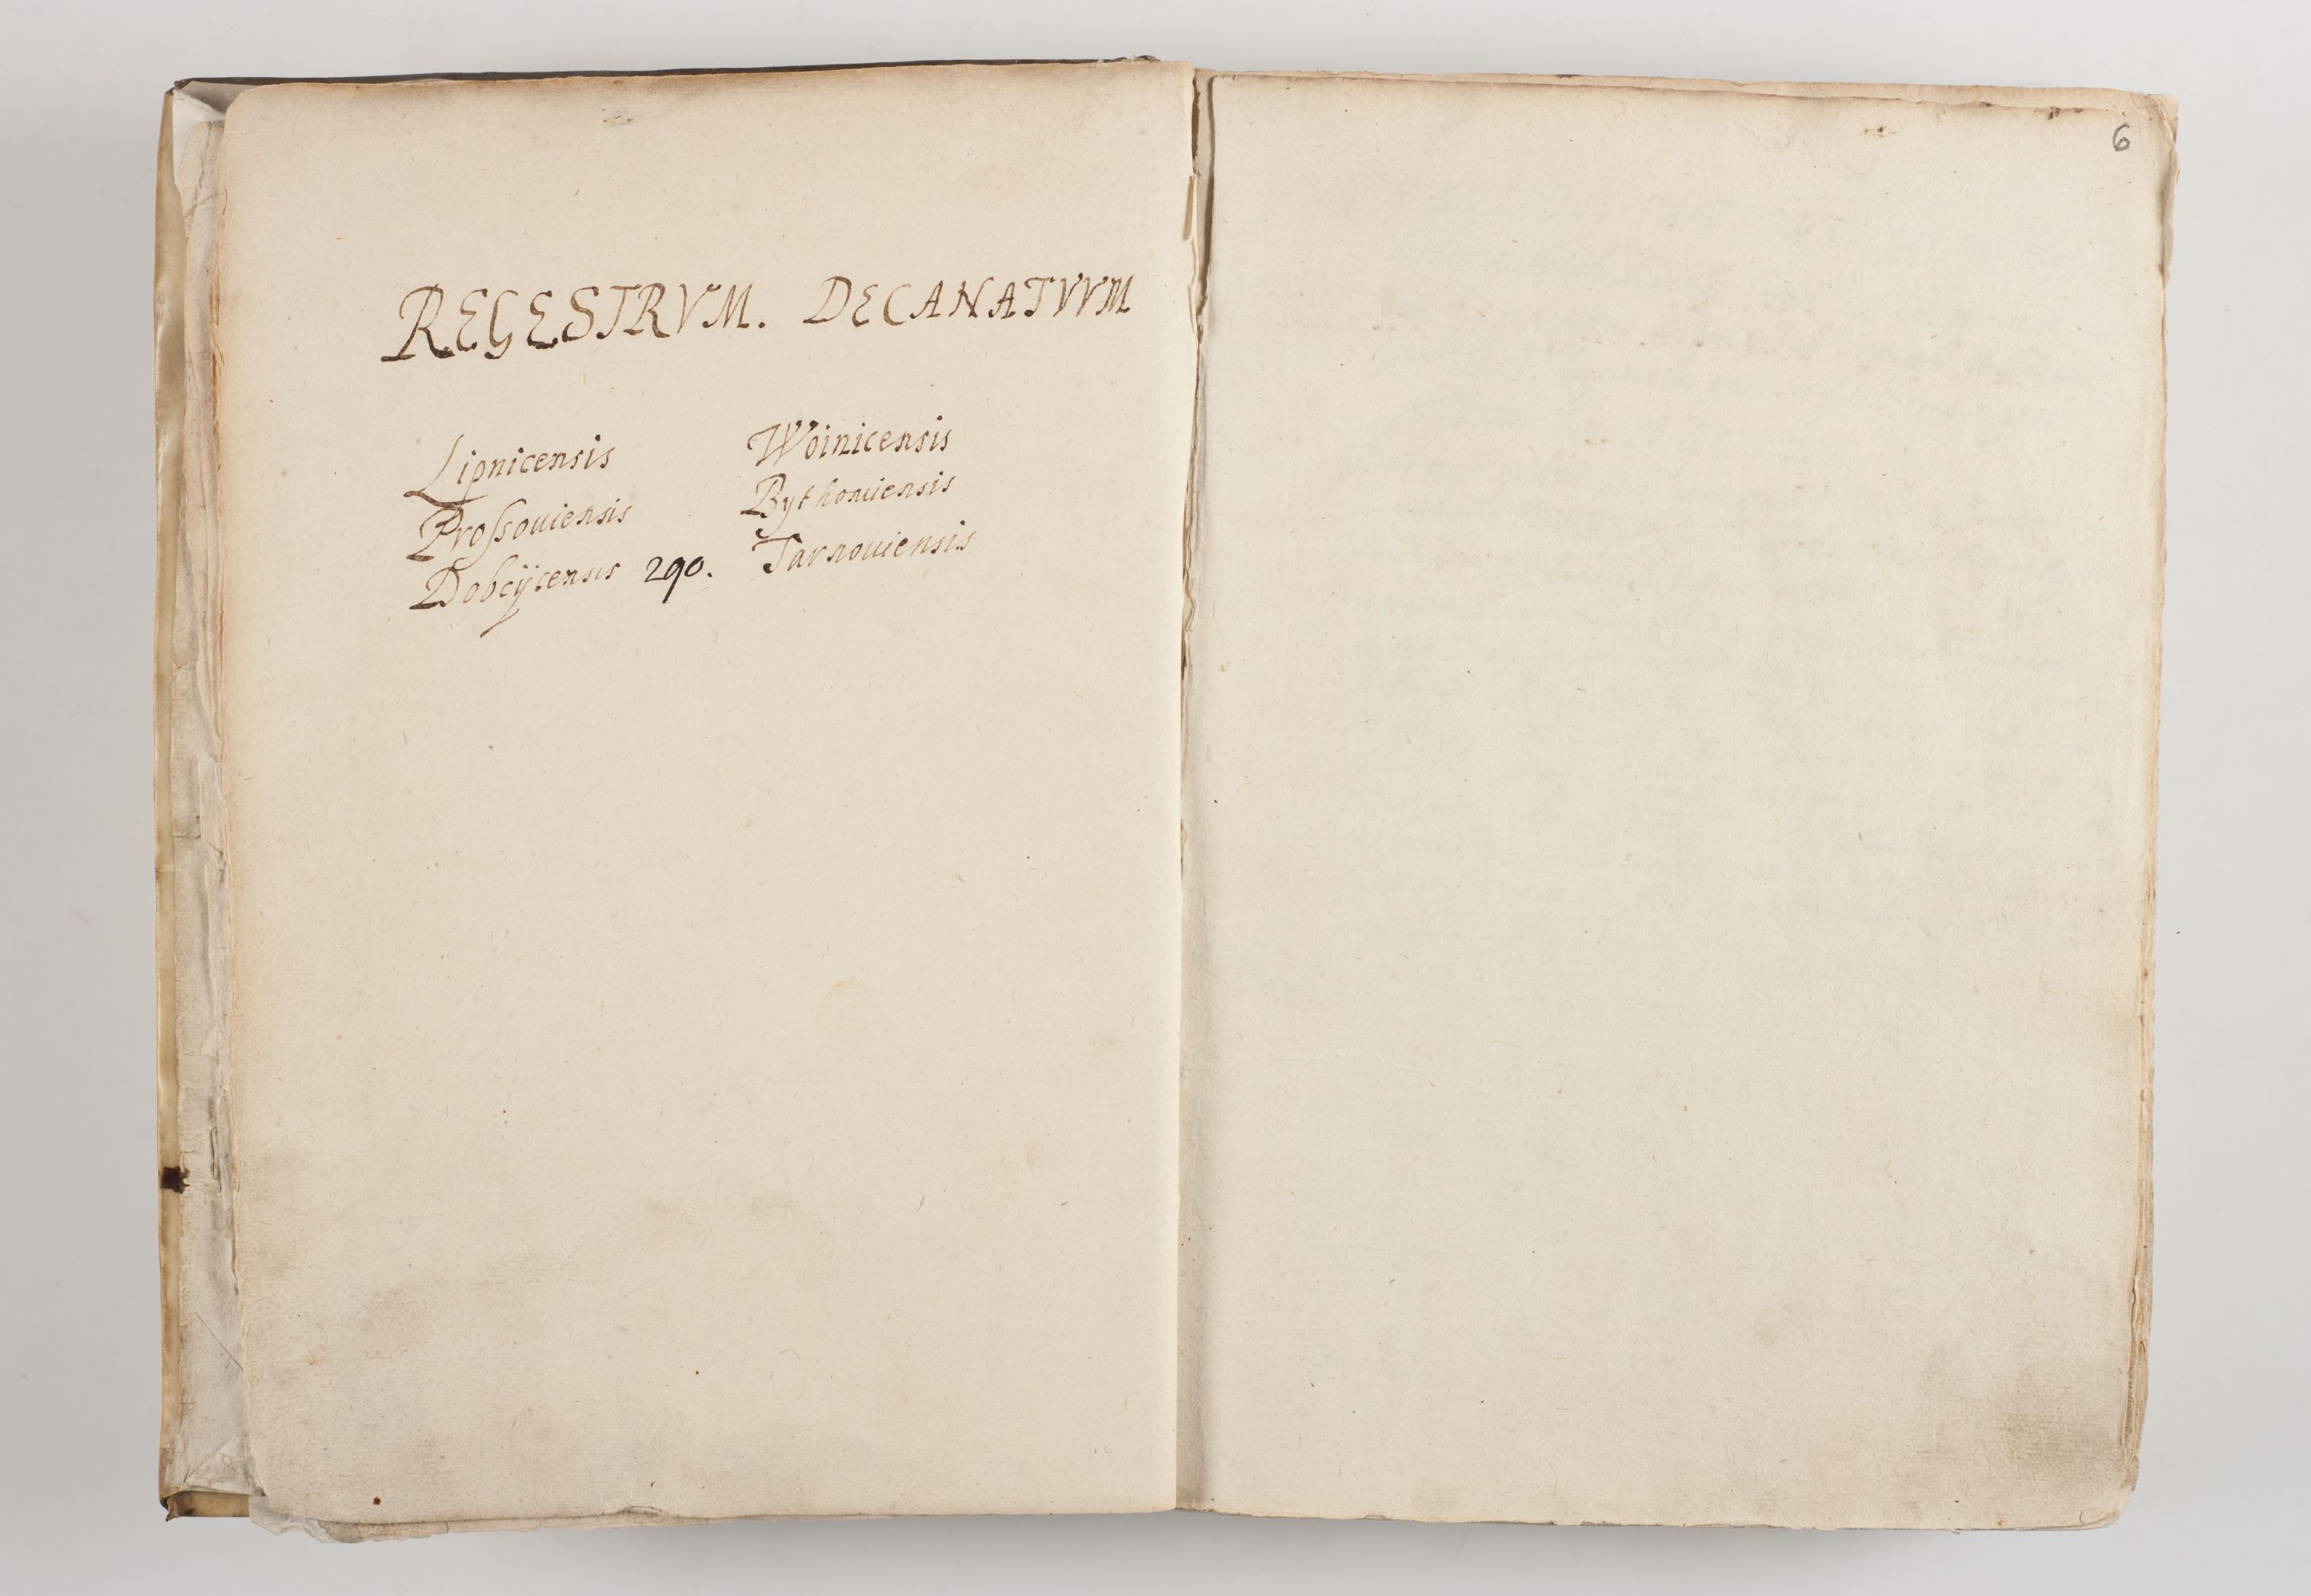 6
REGESTRVM. DECANATVVM
Lipnicensis
Proſsouiensis
Dobcÿcensis 290.
Woinicensis
Bythomiensis
Tarnouiensis